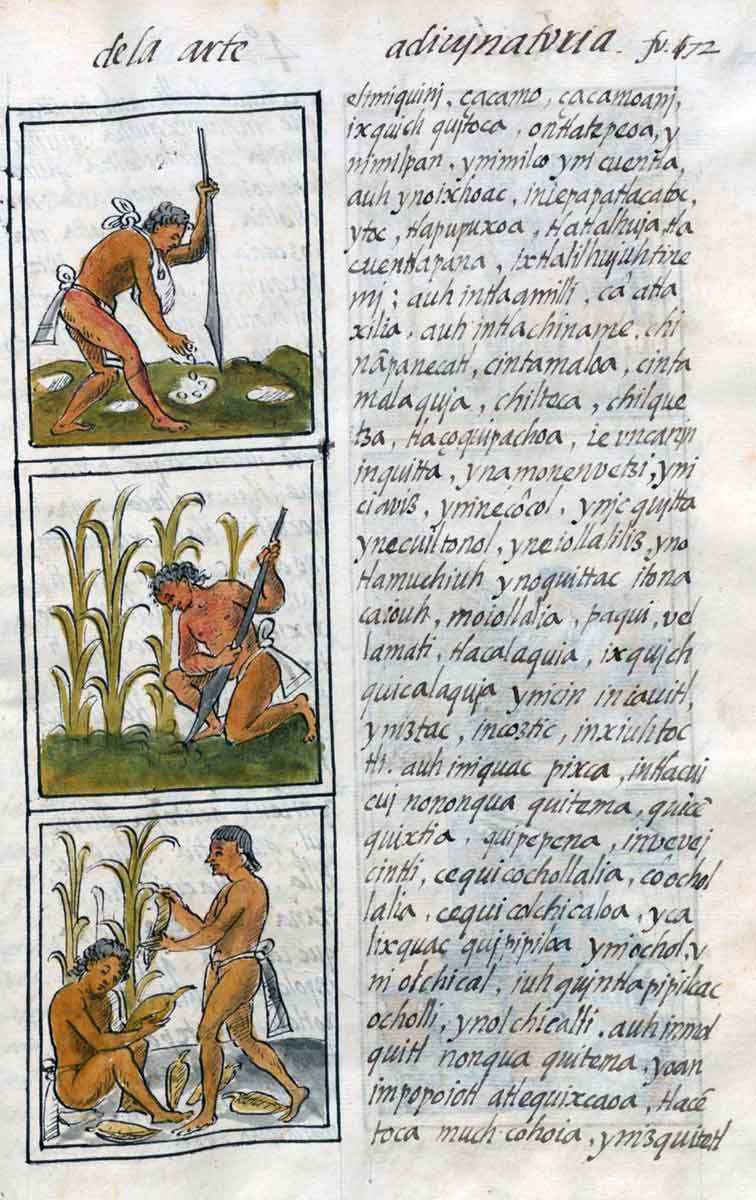 dela arte
adiujnatoria. fo. 72
eltmiquinj, cacamo, cacamoanj,
ixquich quitoca, ontlatepeoa, y
nimilpan, ynimilco yni cuentla,
auh ynoixhoac, iniepapatlacatoc,
ytoc, tlapupuxoa, tlatalhuja, tla
cuentlapana, txtlalilhujuhtine
mj; auh intlaamilli, ca atla
xilia, auh intlachiname, chi
nāpanecatl, cintamaloa, cinta
malaquja, chilteca, chilque
tza, tlaçoquipachoa, ie vncan
inquitta, ynamonenvetzi, yni
ciaviz, yninecôcol, ynjc quitta
ynecuiltonol, yneiollaliliz, yno
tlamuchiuh ynoquittac itona
caiouh, moiollalia, paqui, vel
lamati, tlacalaquia, ixqujch
quicalaquja ynicin iniavitl,
yniztac, incoztic, inxiuhtoc
tli. auh iniquac pixca, intlacui
cuj nononqua quitema, quicē
quixtia, quipepena, invevej
cintli, cequicochollalia, côochol
lalia, cequicolchicaloa, yca
lixquac quipipiloa yniochol, y
ni olchical, iuh quintlapipilcac
ocholli, ynolchicalli. auh inmol
quitl nonqua quitema, yoan
impopoiotl atlequixcaoa, tlacē
toca much cohoia, ynizquitetl